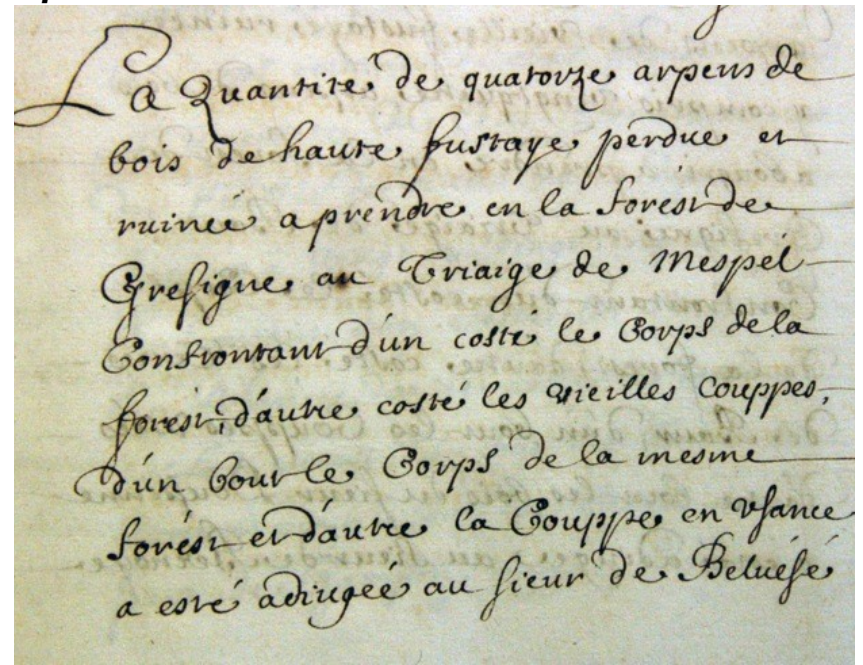 La Quantité de quatorze arpens de
bois de haute fustaye perdue et
ruineé a prendre en la forest de
Gresigne au Triaige de Mespel
Confrontant d'un costé le Corps de la
forest, d'autre costé les vieilles Couppes,
d'un bout le Corps de la mesme
forést et d'autre la Couppe en Vsance
a esté adiugeé au sieur de Beluésé